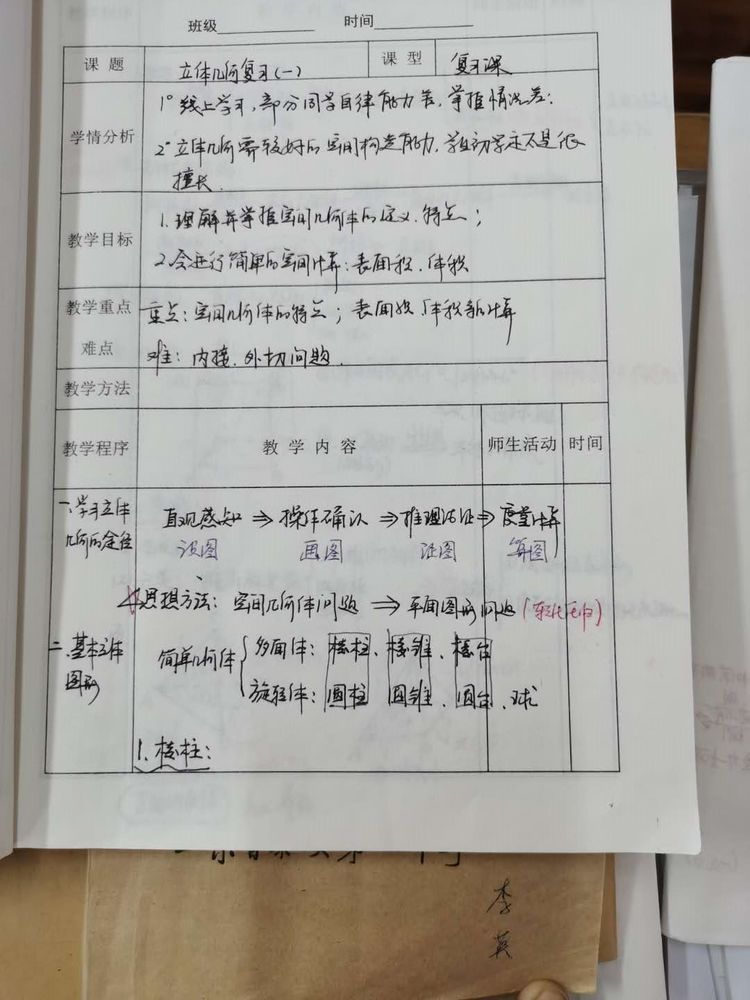 班级 时间
课题 立体几何复习(一) 课型 复习课
学情分析 1° 线上学习,部分同学自律能力差,掌握情况差;
2° 立体几何需较好的空间构造能力,学生初学还不是很
擅长.
教学目标 1. 理解并掌握空间几何体的定义、特点;
2. 会进行简单的空间计算:表面积、体积
教学重点 重点:空间几何体的特点;表面积、体积的计算
难点 难:内接、外切问题.
教学方法
教学程序 教学内容 师生活动 时间
一、学习立体 直观感知 ⇒ 操作确认 ⇒ 推理论证 ⇒ 度量计算
几何的途径 识图 画图 证图 算图
思想方法:空间几何体问题 ⇒ 平面图形问题 (转化)
二、基本立体 简单几何体 { 多面体:棱柱、棱锥、棱台
图形 旋转体:圆柱、圆锥、圆台、球
1. 棱柱:
李
英